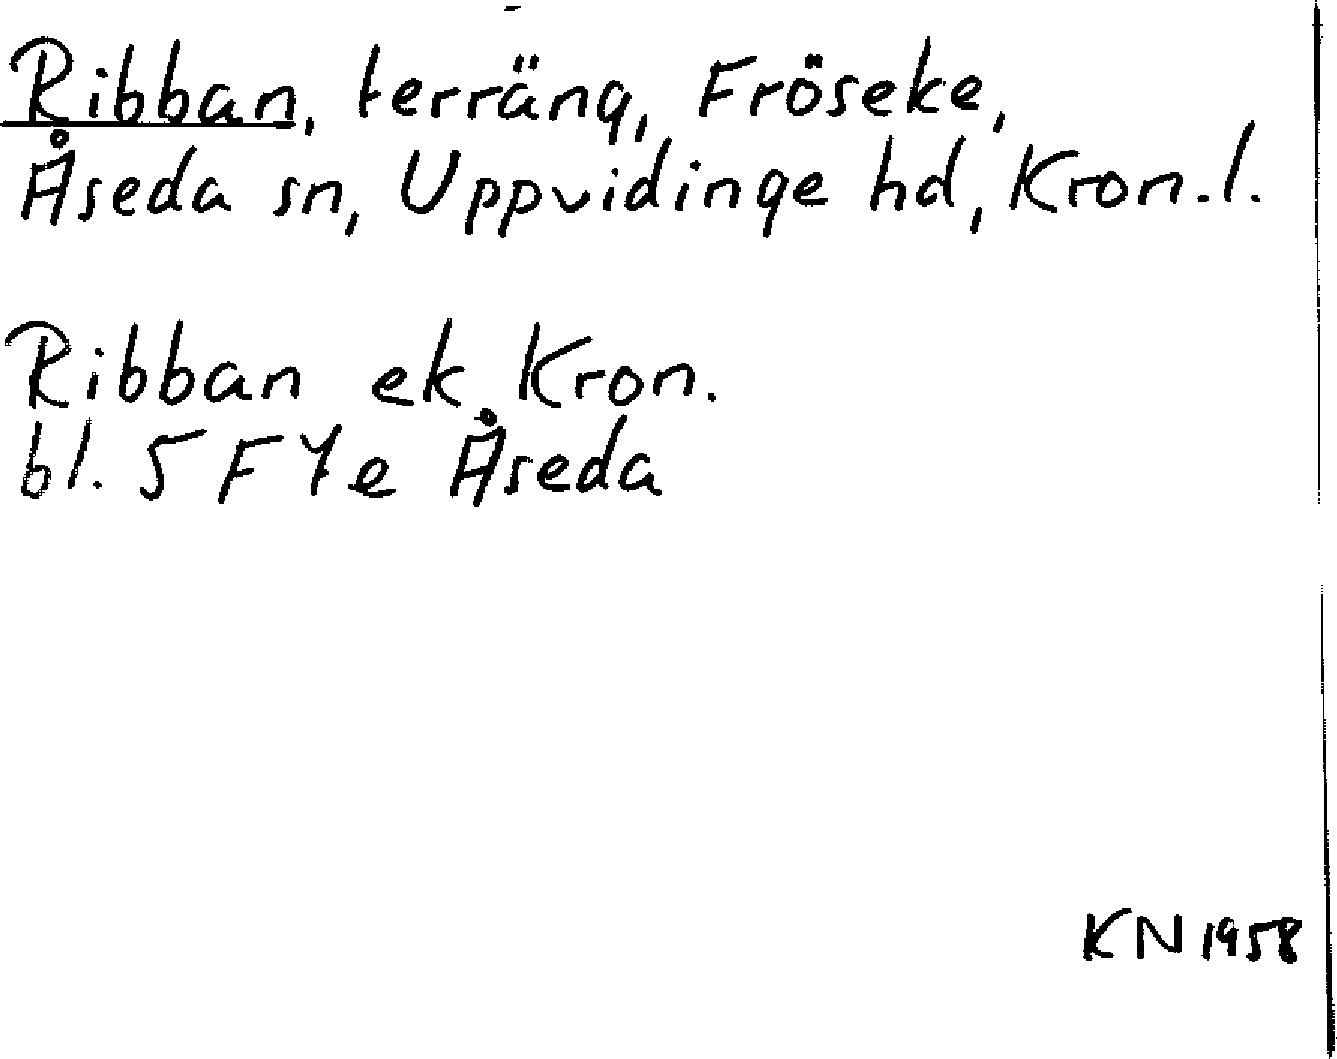 Ribban, terräng, Fröseke,
Åseda sn, Uppvidinge hd, Kron.l.
Ribban ek Kron.
bl. 5 F 7e Åseda
KN 1958